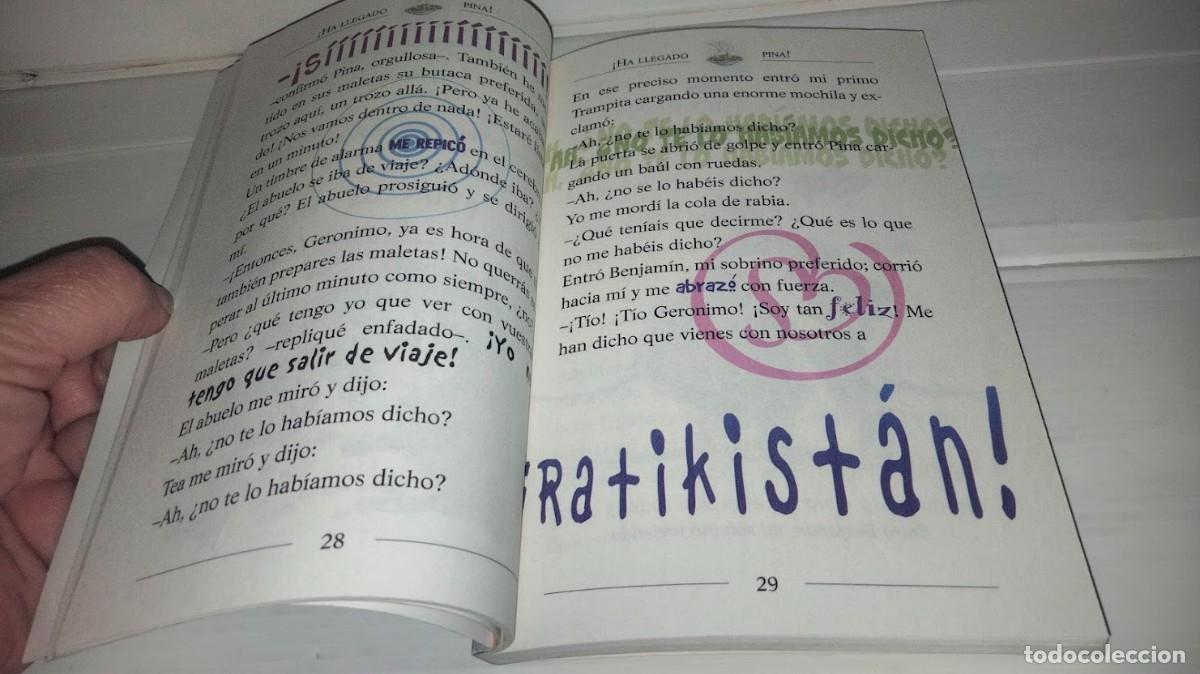 ¡HA LLEGADO PINA!
–¡Síííííííííííííííííí
–confirmó Pina, orgullosa–. También he
tido en sus maletas su butaca preferida.
trozo aquí, un trozo allá. ¡Pero ya he
do! ¡Nos vamos dentro de nada! ¡Estaré
en un minuto!
Un timbre de alarma ME REPICÓ en el
¿El abuelo se iba de viaje? ¿Adónde iba?
por qué? El abuelo prosiguió y se dirigió
mí.
–¡Entonces, Geronimo, ya es hora de que
también prepares las maletas! No querrás
perar al último minuto como siempre,
–Pero ¿qué tengo yo que ver con
maletas? –repliqué enfadado–. ¡Yo
tengo que salir de viaje!
El abuelo me miró y dijo:
–Ah, ¿no te lo habíamos dicho?
Tea me miró y dijo:
–Ah, ¿no te lo habíamos dicho?
28
¡HA LLEGADO PINA!
En ese preciso momento entró mi primo
Trampita cargando una enorme mochila y ex-
clamó:
–Ah, ¿no te lo habíamos dicho?
La puerta se abrió de golpe y entró Pina car-
gando un baúl con ruedas.
–Ah, ¿no se lo habéis dicho?
Yo me mordí la cola de rabia.
–¿Qué teníais que decirme? ¿Qué es lo que
no me habéis dicho?
Entró Benjamín, mi sobrino preferido; corrió
hacia mí y me abrazó con fuerza.
–¡Tío! ¡Tío Geronimo! ¡Soy tan feliz! Me
han dicho que vienes con nosotros a
¡Ratikistán!
29
todocoleccion